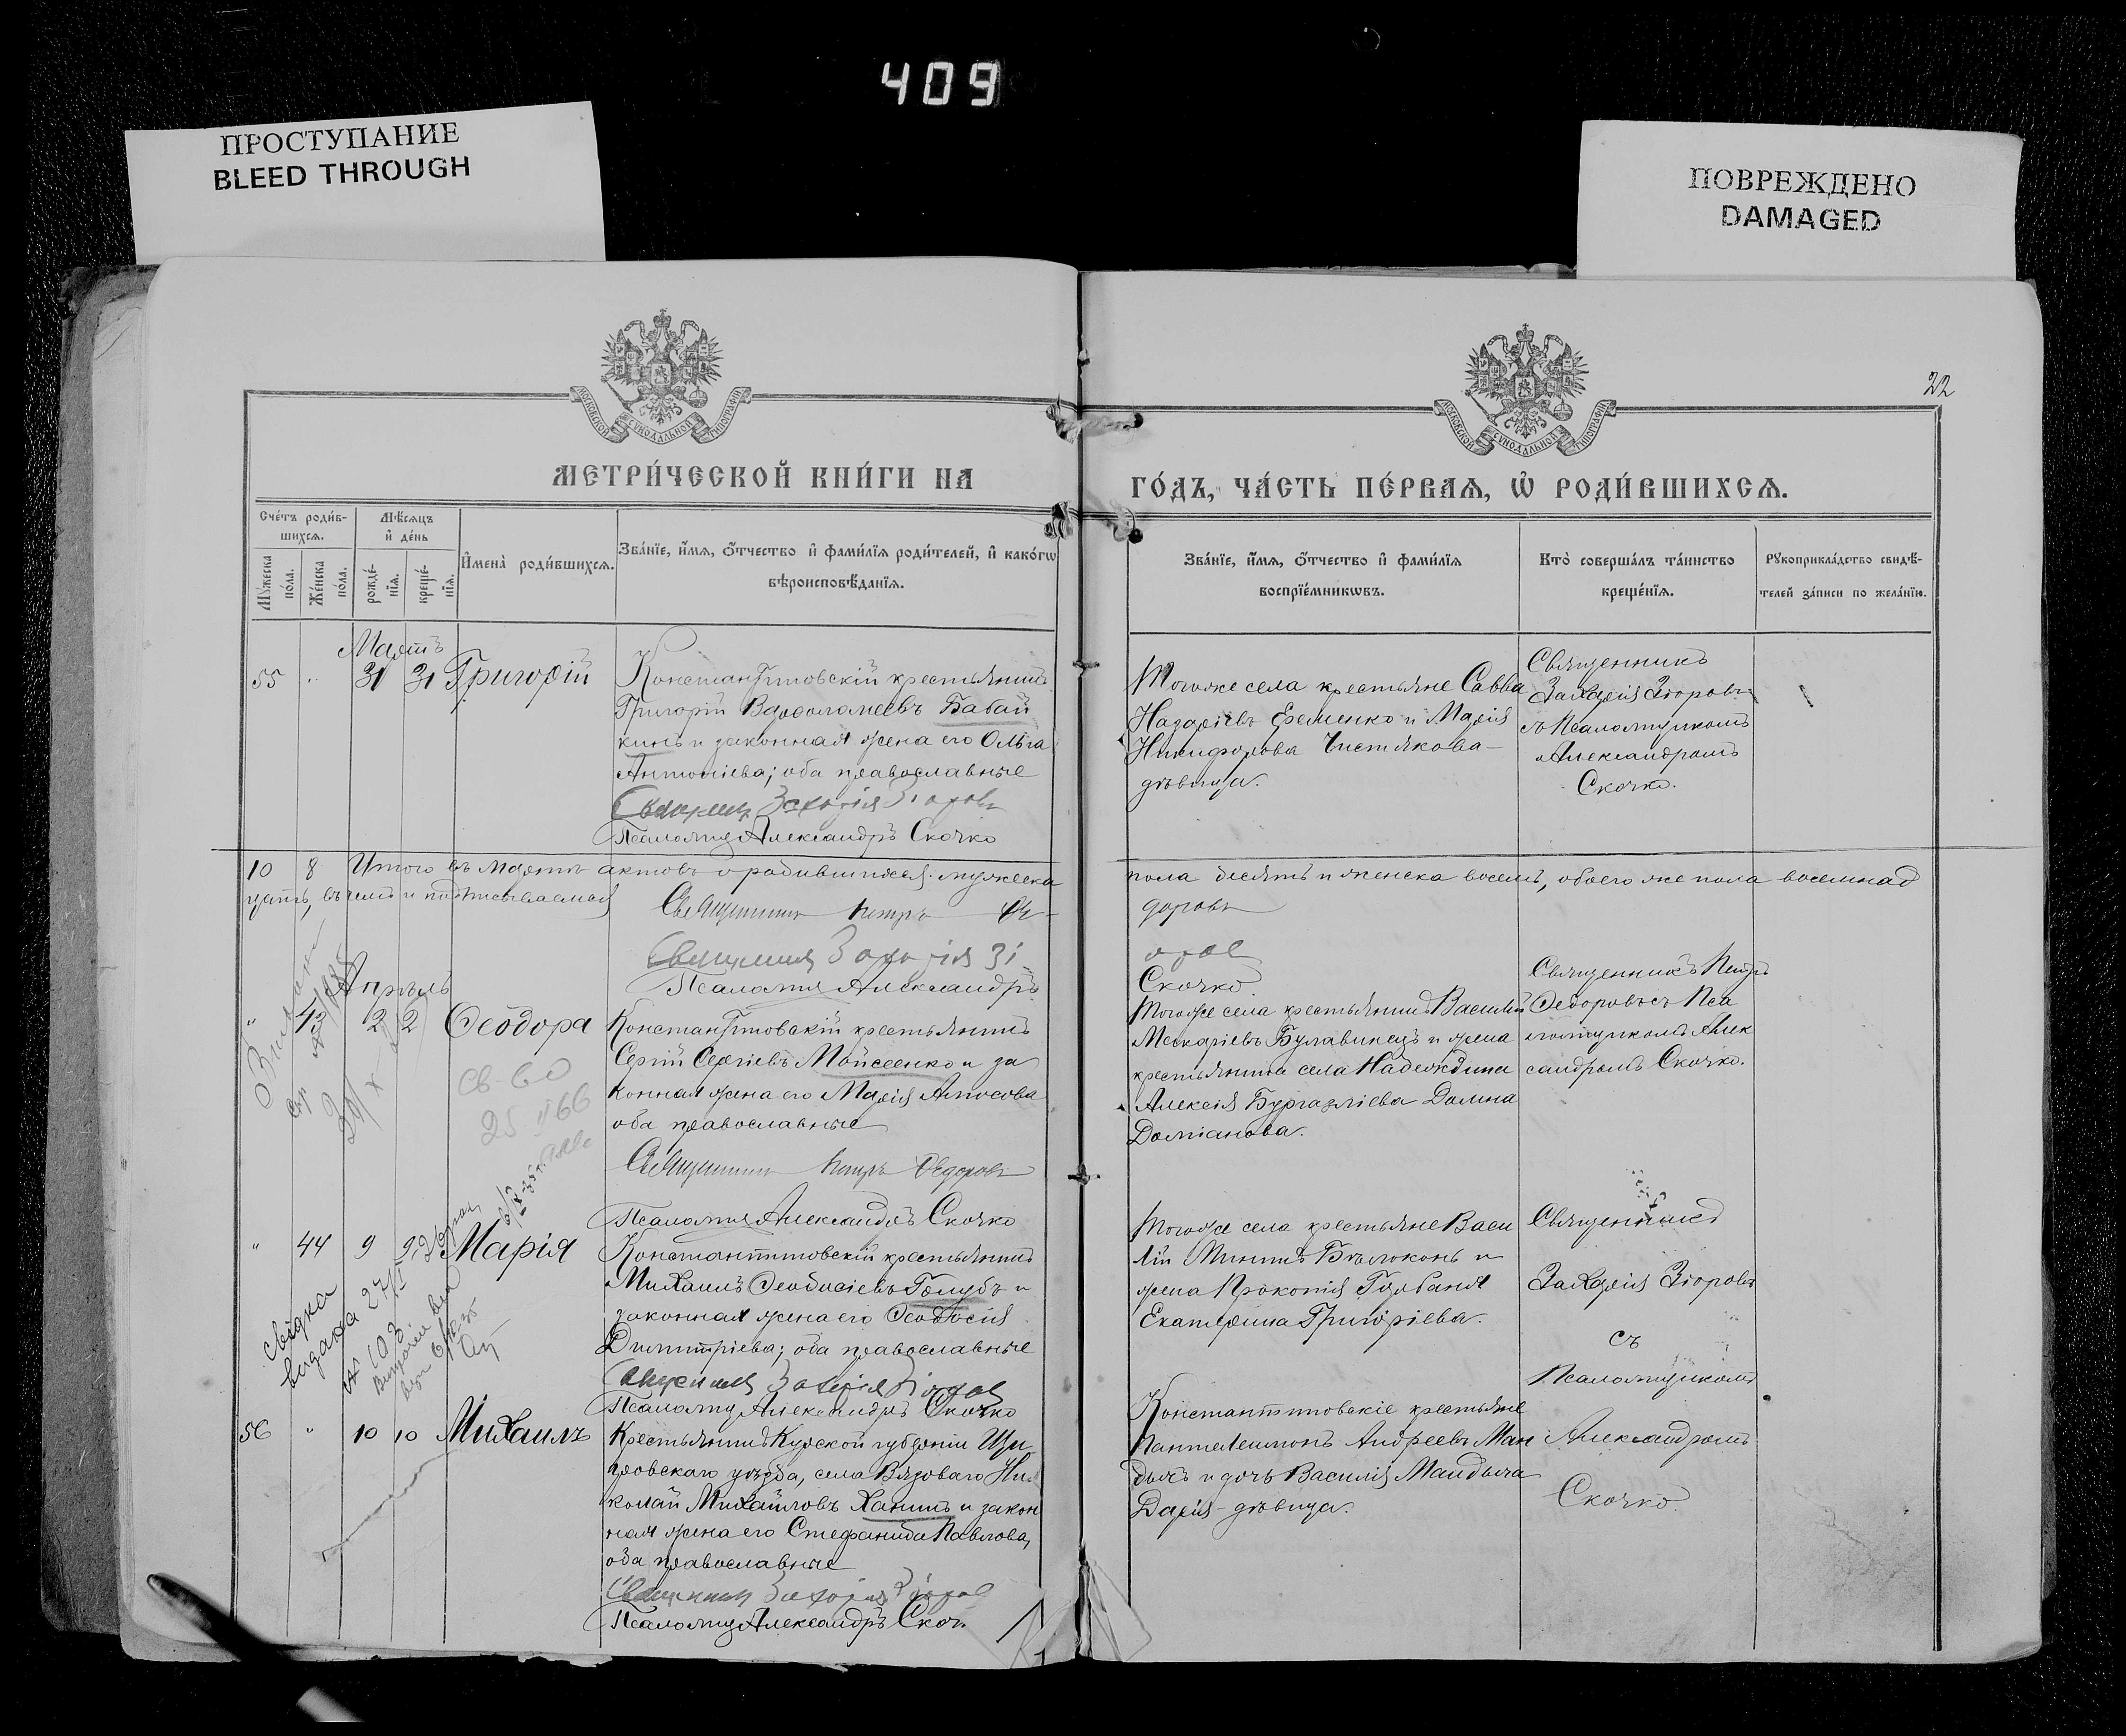 409
ПРОСТУПАНИЕ
BLEED THROUGH
ПОВРЕЖДЕНО
DAMAGED
22
МОСКОВСКОЙ СѴНОДАЛЬНОЙ ТИПОГРАФІИ
МОСКОВСКОЙ СѴНОДАЛЬНОЙ ТИПОГРАФІИ
МЕТРИ́ЧЕСКОЙ КНИ́ГИ НА
ГО́ДЪ, ЧА́СТЬ ПЕ́РВАѦ, Ѡ҆ РОДИ́ВШИХСѦ.
Сче́тъ роди́в-
шихсѧ.
Мѣ́сѧцъ
и҆ де́нь
Мꙋ́жеска
по́ла.
Же́нска
по́ла.
рожде́-
нїѧ.
креще́-
нїѧ.
И҆мена̀ роди́вшихсѧ.
Зва́нїе, и҆́мѧ, ѻ҆́тчество и҆ фами́лїѧ роди́телей, и҆ како́гѡ
вѣроисповѣ́данїѧ.
Зва́нїе, и҆́мѧ, ѻ҆́тчество и҆ фами́лїѧ
воспрїе́мникѡвъ.
Кто̀ соверша́лъ та́инство
креще́нїѧ.
Рꙋкоприкла́дство свидѣ́-
телей за́писи по жела́нїю.
Мартъ
55 " 31 31 Григорій
Константиновскій крестьянинъ
Григорій Варѳоломеевъ Бабай
кинъ и законная жена его Ольга
Антоніева; оба православные
Священ. Захарія Зіоровъ
Псаломщ Александръ Скочко
Тогоже села крестьяне Савва
Назаріевъ Еременко и Марія
Никифорова Чистякова –
дѣвица.
Священникъ
Захарія Зіоровъ
съ Псаломщикомъ
Александромъ
Скочко.
10 8 Итого въ мартѣ актовъ о родившихся мужеска
пола десять и женска восемь, обоего же пола восемнад
цать, въ чемъ и подписываемся
Священникъ Петръ Ѳе-
доровъ
Священник Захарія Зі-
оров
Псаломщ Александръ
Скочко
Апрѣль
" 43 2 2 Ѳеодора
Константиновскій крестьянинъ
Сергій Сергіевъ Мойсеенко и за
конная жена его Марія Амосова
оба православные
Священникъ Петръ Ѳедоровъ
Псаломщ Александръ Скочко
Тогоже села крестьянинъ Василій
Макаріевъ Булавинецъ и жена
крестьянина села Надеждина
Алексія Домна
Доміанова.
Священникъ Петръ
Ѳедоровъ съ Пса
ломщикомъ Алек
сандромъ Скочко.
Св-во
25 II 66
" 44 9 9 Марія
Константиновскій крестьянинъ
Михаилъ Ѳеодосіевъ Голубъ и
законная жена его Ѳеодосія
Димитріева; оба православные
Священник Захарія Зіоров
Псаломщ Александръ Скочко
Тогоже села крестьяне Васи
лій Бѣлоконь и
жена Прокопія Горбаня
Екатерина Григоріева.
Священникъ
Захарія Зіоровъ
съ
Псаломщикомъ
Александромъ
Скочко.
свідка
видана 27/I
№ 103
56 " 10 10 Михаилъ
Крестьянинъ Курской губерніи Щи
гровскаго уѣзда, села Вязоваго Ни
колай Михайловъ Ханинъ и закон
ная жена его Стефанида Павлова,
оба православные
Священник Захарія Зіоров
Псаломщ Александръ Скоч.
Константиновскіе крестьяне
Пантелеимонъ Андреевъ Ман
дычъ и дочь Василія Мандыча
Дарія – дѣвица.